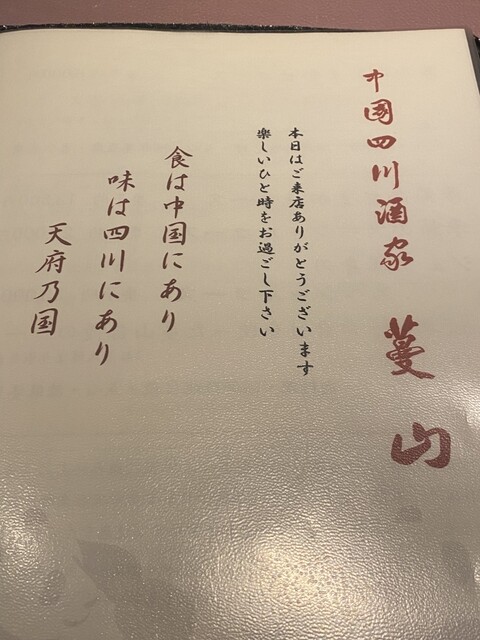 中国四川酒家 蔓山
本日はご来店ありがとうございます
楽しいひと時をお過ごし下さい
食は中国にあり
味は四川にあり
天府乃国